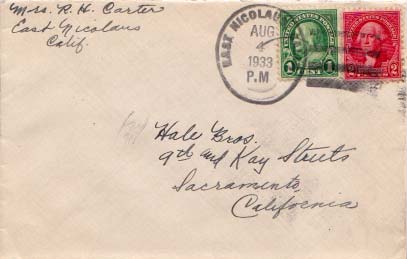 Mrs. R. H. Carter
East Nicolaus
Calif.
EAST NICOLAU
AUG
4
1933
P.M
UNITED STATES POSTAGE
1 CENT 1
2 2
Hale Bros.
9th and Kay Streets
Sacramento,
California